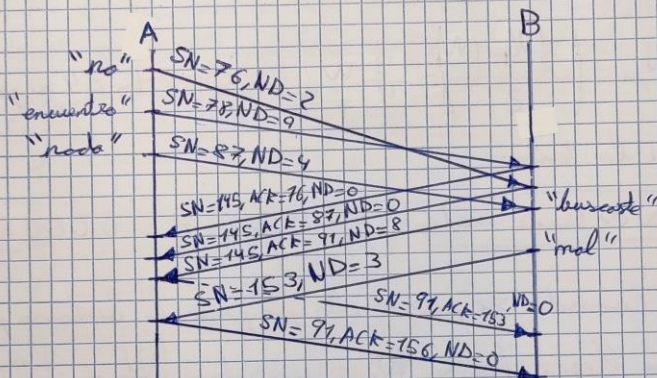 A
B
"no"
SN=76, ND=2
"encuentro"
SN=78, ND=9
"nada"
SN=87, ND=4
SN=145, ACK=76, ND=0
SN=145, ACK=87, ND=0
"buscaste"
SN=145, ACK=91, ND=8
"mal"
SN=153, ND=3
SN=91, ACK=153, ND=0
SN=91, ACK=156, ND=0